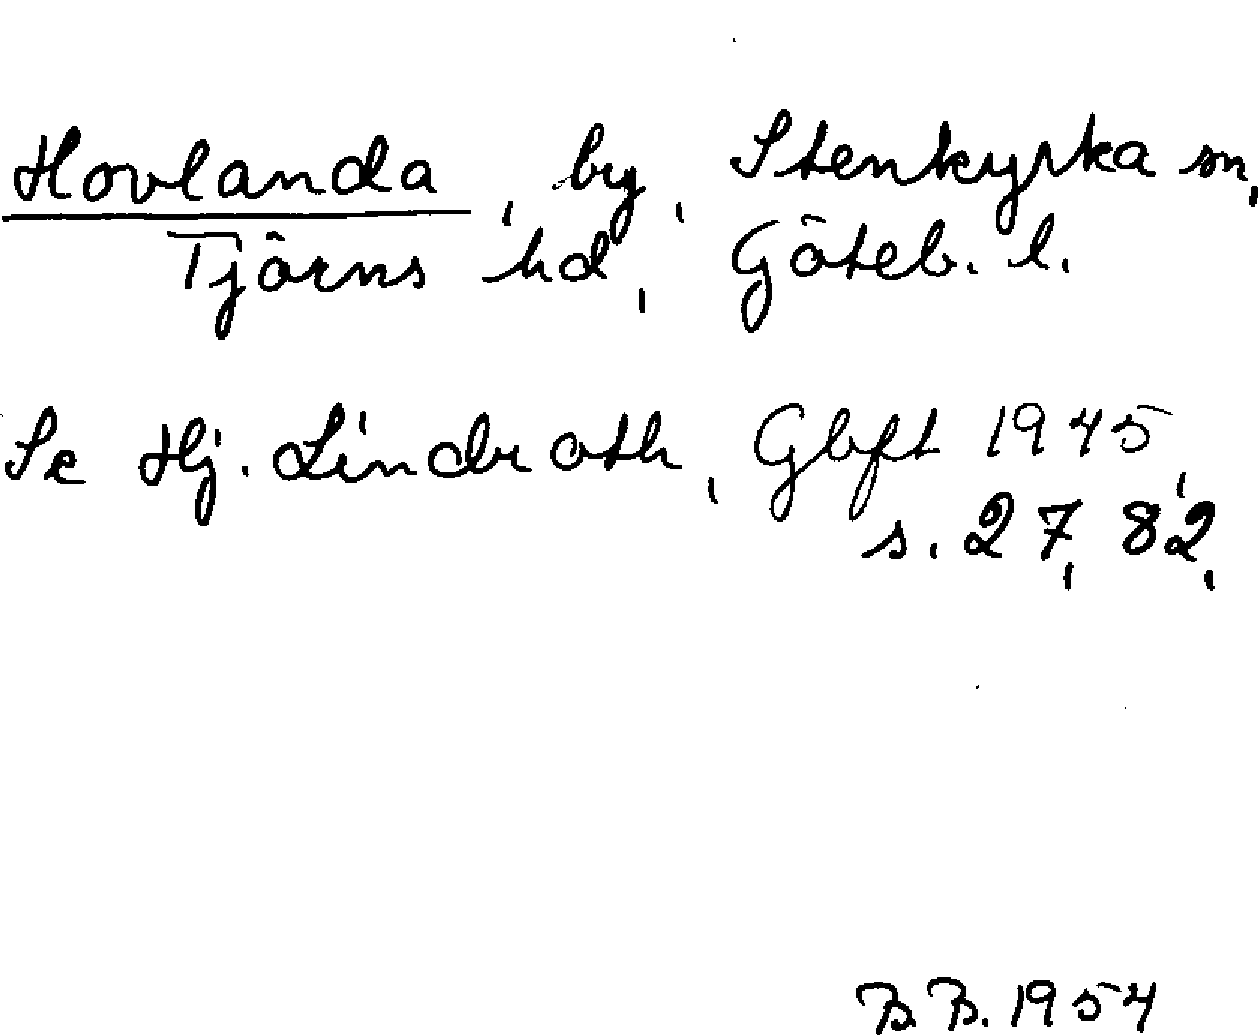 Hovlanda, by, Stenkyrka sn,
Tjörns hd, Göteb. l.
Se Hj. Lindroth, Gbft 1945,
s. 27, 82,
B.B. 1954